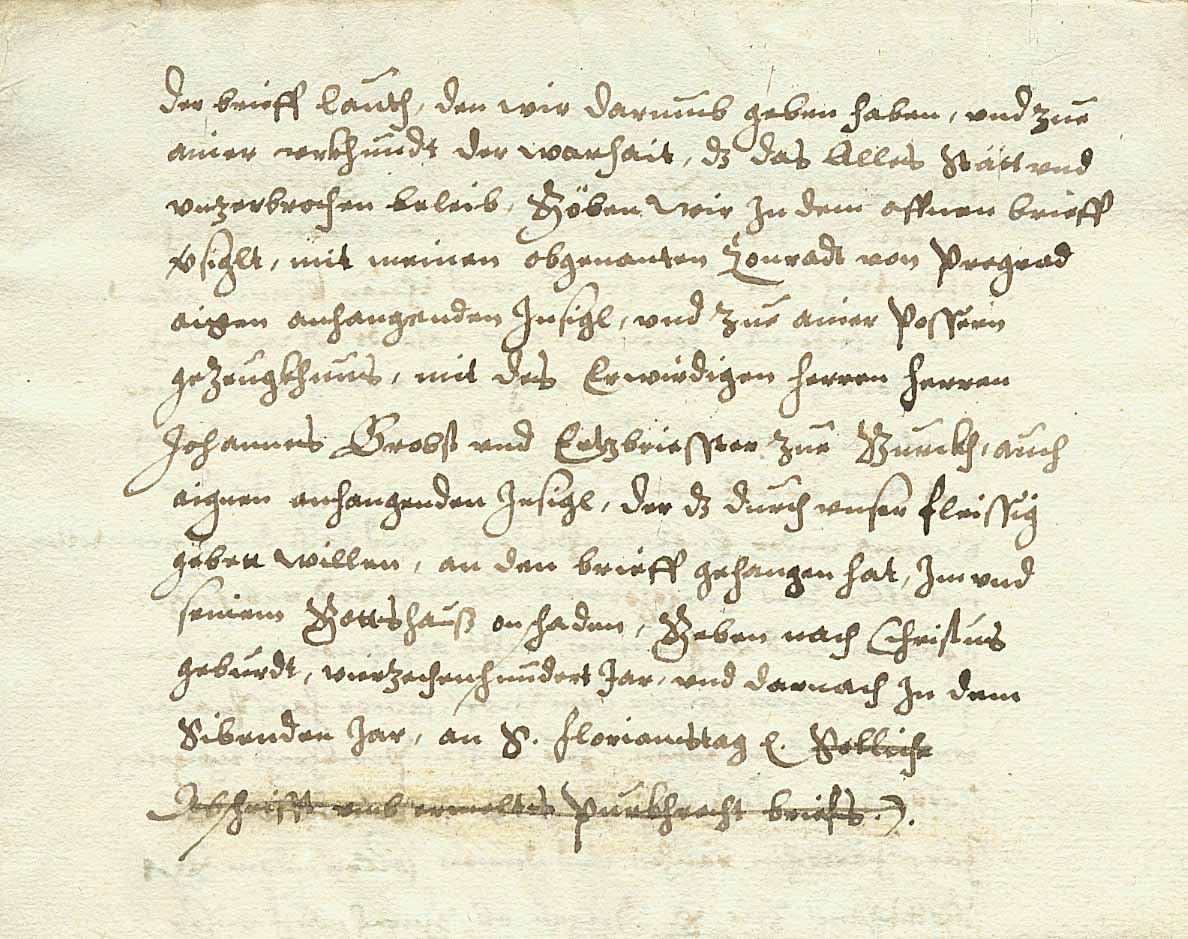 der brieff lauth, den wir darumb geben haben, vnd zue
ainer vrkhundt der warhait, dz das Alles Stätt vnd
vnzerbrochen beleib, Göben wir In dem offnen brieff
vsiglt, mit meinen obgenanten Conradt von Pregrad
aigen anhangenden Insigl, vnd zue ainer Possern
gezeugkhnus, mit des Erwirdigen herren herren
Johannes Brobst vnd Ertzbriesster zue Gurckh, auch
aignen anhangenden Insigl, der dz durch vnser fleissig
gebett willen, an den brieff gehangen hat, Im vnd
seinem Gottshauß on schaden, Geben nach Christus
geburdt, vierzechenhundert Jar, vnd darnach In dem
Sibenden Jar, an S. florianstag
Abschrifft purkhrecht briefs